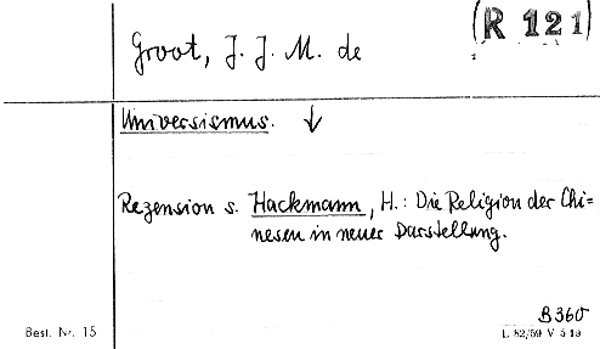 (R 121)
Groot, J. J. M. de
Universismus. ↓
Rezension s. Hackmann, H.: Die Religion der Chi=
nesen in neuer Darstellung.
B360
Best. Nr. 15
L 82/59 V 5 19